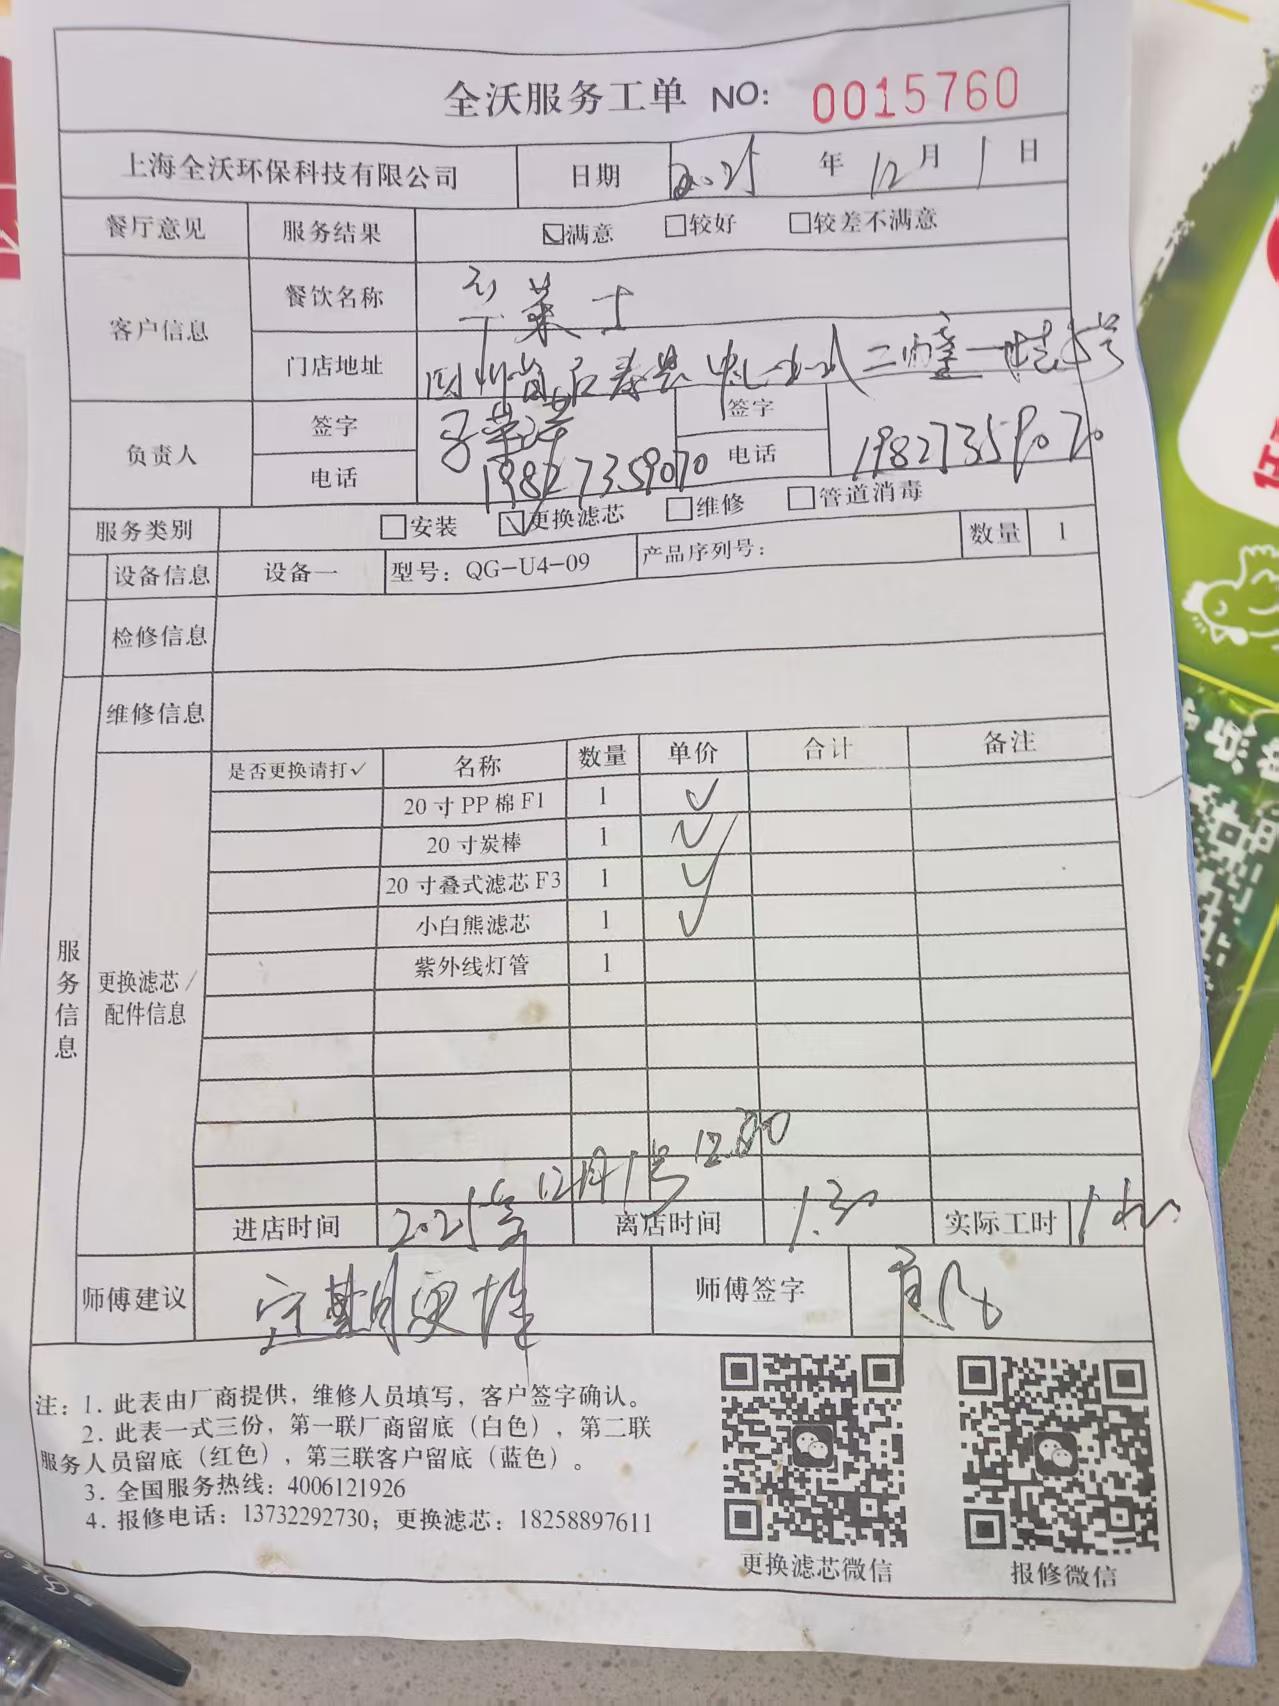 全沃服务工单 NO: 0015760
上海全沃环保科技有限公司 日期 2025 年 12 月 1 日
餐厅意见 服务结果 ☑满意 □较好 □较差不满意
客户信息 餐饮名称 莱士
门店地址 四川省仁寿县
负责人 签字 签字
电话 19827359070 电话 19827359070
服务类别 □安装 ☑更换滤芯 □维修 □管道消毒
设备信息 设备一 型号: QG-U4-09 产品序列号: 数量 1
检修信息
维修信息
服务信息
更换滤芯/配件信息
是否更换请打✓ 名称 数量 单价 合计 备注
20寸PP棉F1 1 ✓
20寸炭棒 1 ✓
20寸叠式滤芯F3 1 ✓
小白熊滤芯 1 ✓
紫外线灯管 1
进店时间 2025年12月1号12.30 离店时间 1.30 实际工时 1
师傅建议 定期更换 师傅签字
注: 1. 此表由厂商提供, 维修人员填写, 客户签字确认。
2. 此表一式三份, 第一联厂商留底(白色), 第二联
服务人员留底(红色), 第三联客户留底(蓝色)。
3. 全国服务热线: 4006121926
4. 报修电话: 13732292730; 更换滤芯: 18258897611
更换滤芯微信 报修微信